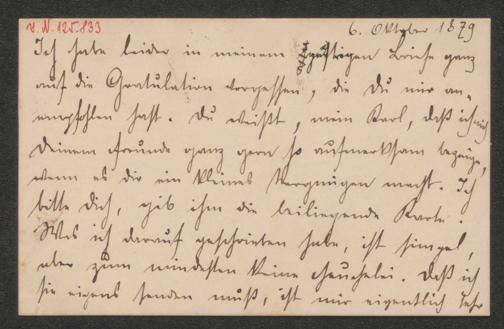 V. N. 125.833
6. Oktober 1879
Ich habe leider in meinem gestrigen Briefe ganz
auf die Gratulation vergessen, die Du mir an-
empfohlen hast. Du weißt, mein Karl, daß ich mich
Deinem Freunde ganz gern so aufmerksam bezeige,
wenn es dir ein kleines Vergnügen macht. Ich
bitte Dich, gib ihm die beiliegende Karte.
Was ich darauf geschrieben habe, ist simpel,
aber zum mindesten keine Heuchelei. Daß ich
sie eigens senden muß, ist mir eigentlich sehr